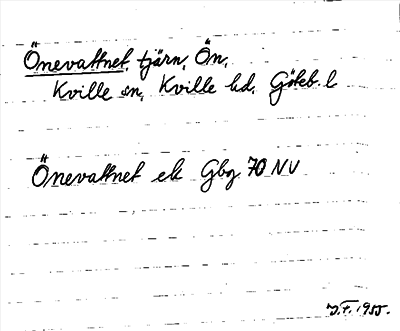 Önevattnet, tjärn, Ön,
Kville sn, Kville hd, Göteb. l
Önevattnet ek Gbg 70 NV
1955.